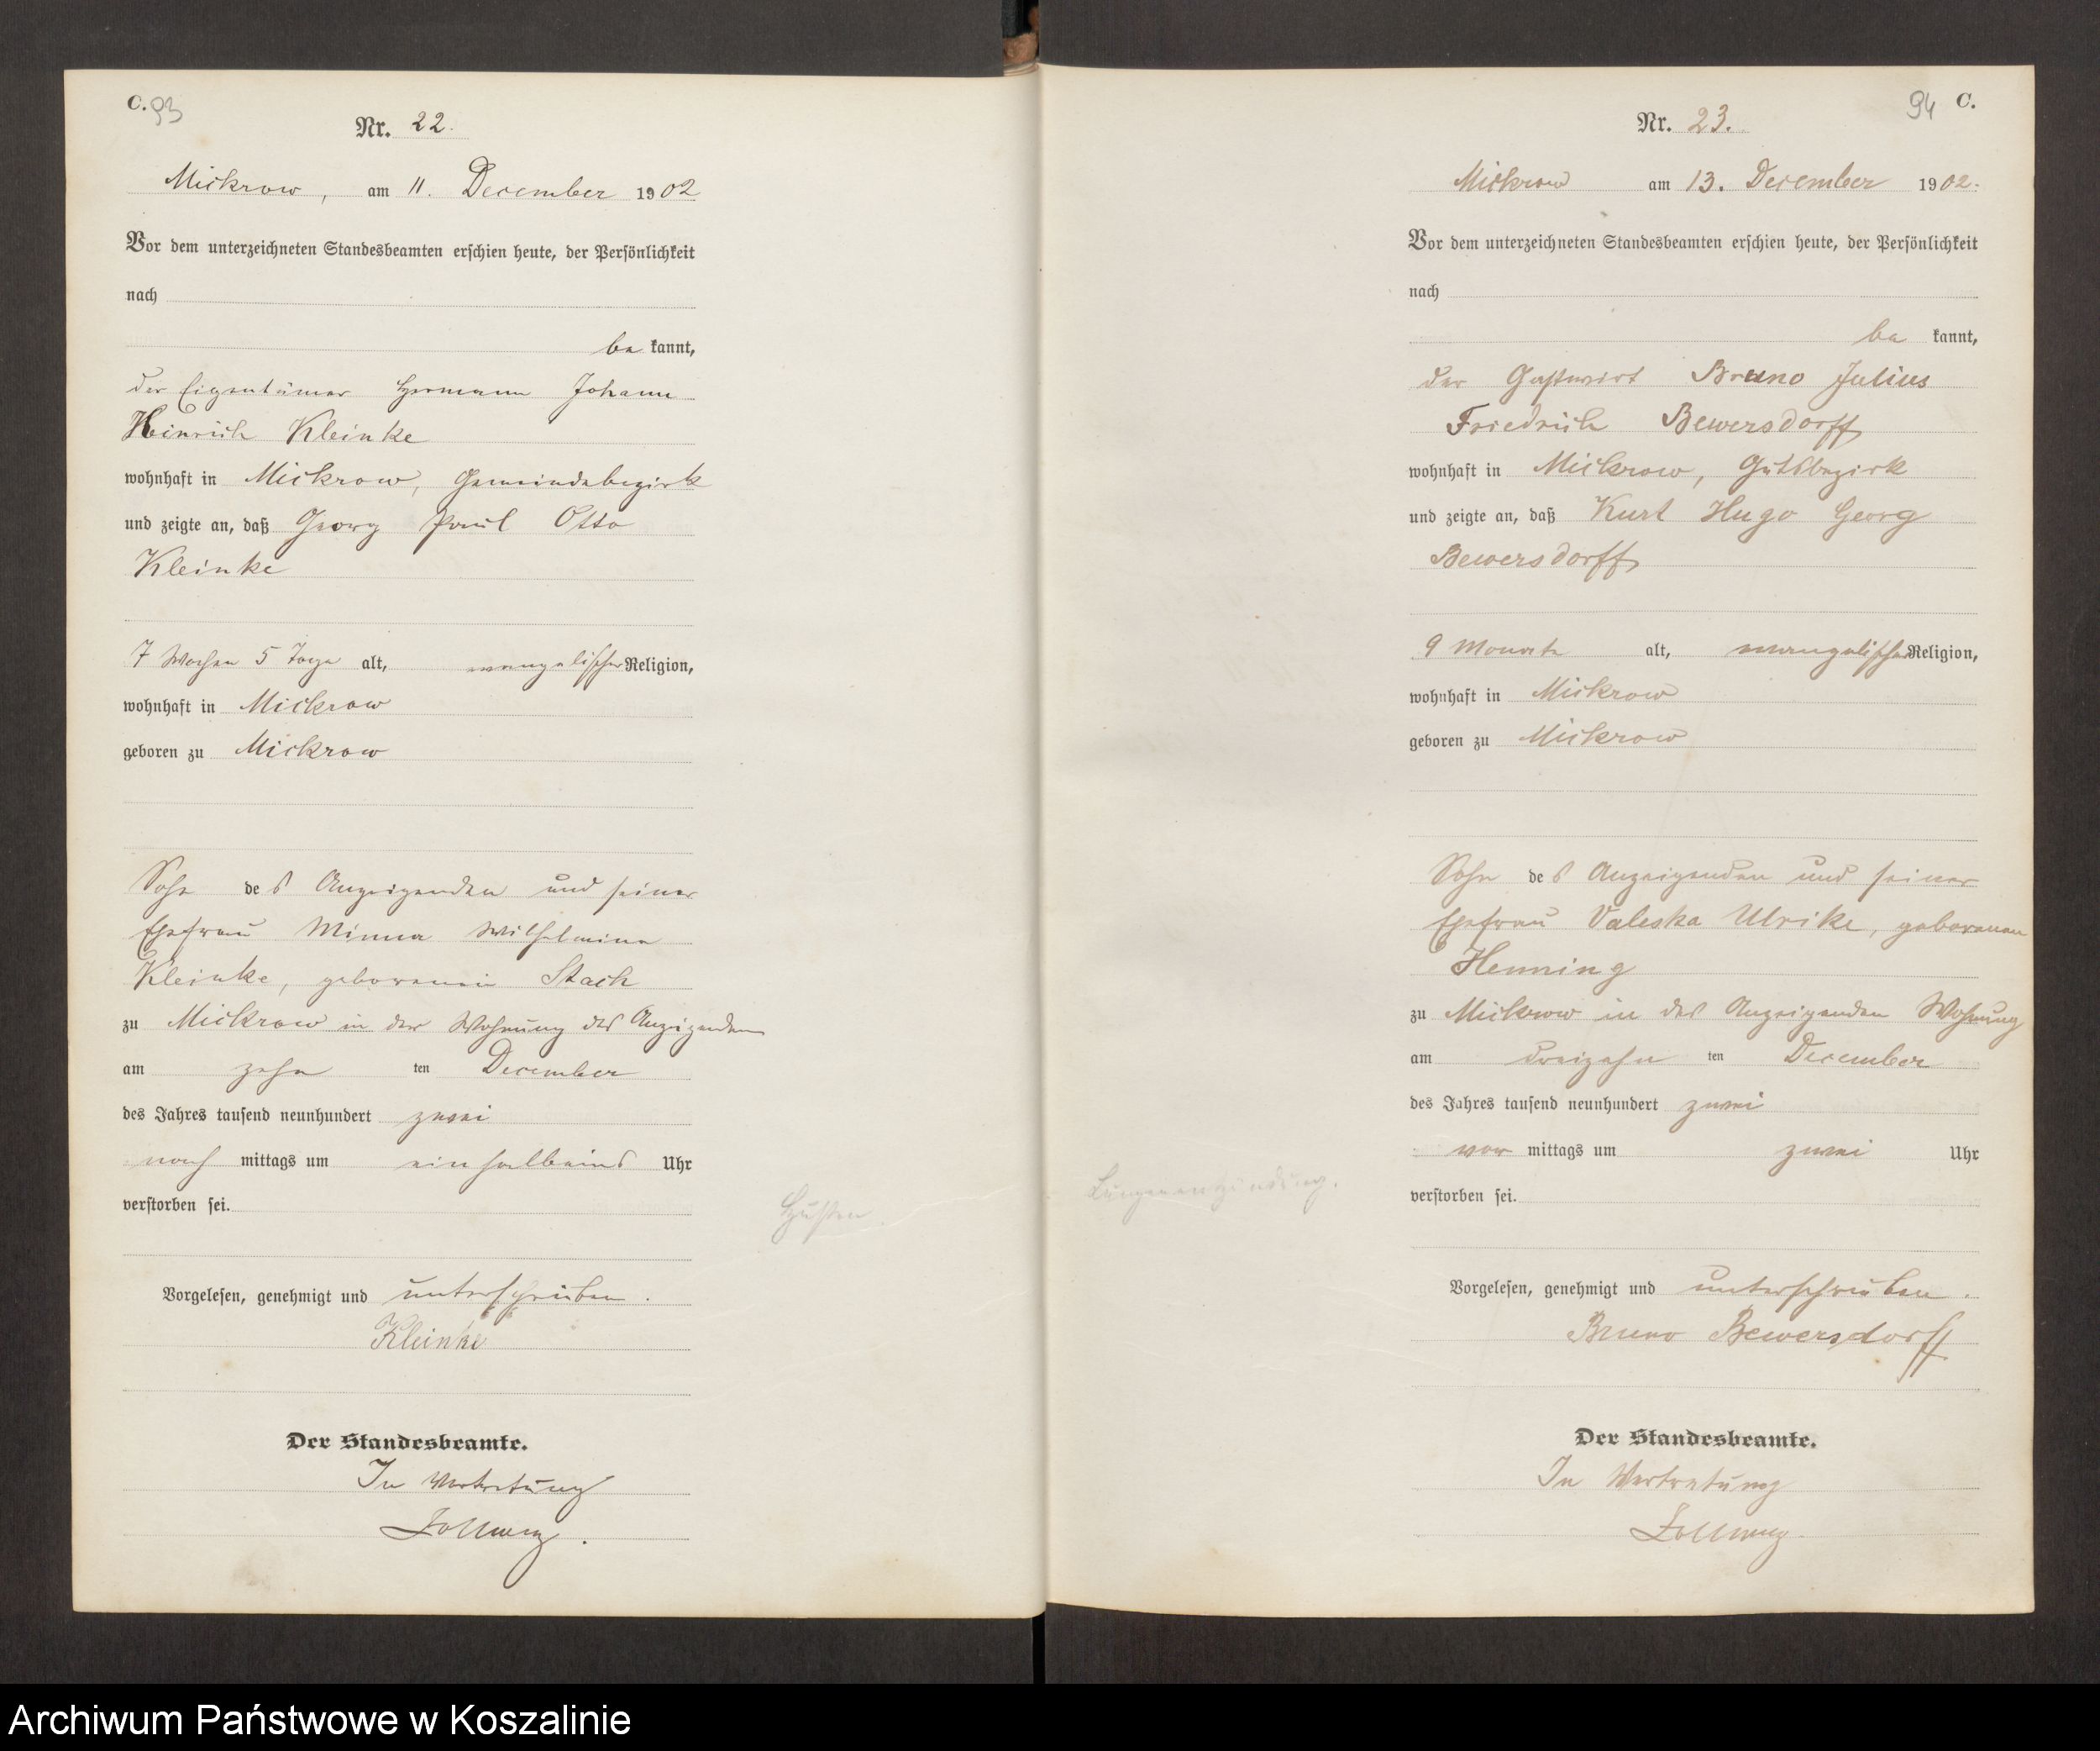 C. 93
Nr. 22.
Mickrow, am 11. December 1902
Vor dem unterzeichneten Standesbeamten erschien heute, der Persönlichkeit
nach
be kannt,
der Eigentümer Hermann Johann
Heinrich Kleinke
wohnhaft in Mickrow, Gemeindebezirk
und zeigte an, daß Georg Paul Otto
Kleinke
7 Wochen 5 Tage alt, evangelischer Religion,
wohnhaft in Mickrow
geboren zu Mickrow
Sohn des Anzeigenden und seiner
Ehefrau Minna Wilhelmine
Kleinke, geborenen Stach
zu Mickrow in der Wohnung des Anzeigenden
am zehn ten December
des Jahres tausend neunhundert zwei
nach mittags um einhalbeins Uhr
verstorben sei.
Husten.
Vorgelesen, genehmigt und unterschrieben.
Kleinke
Der Standesbeamte.
In Vertretung
94 C.
Nr. 23.
Mickrow am 13. December 1902.
Vor dem unterzeichneten Standesbeamten erschien heute, der Persönlichkeit
nach
be kannt,
der Gastwirt Bruno Julius
Friedrich Bewersdorff
wohnhaft in Mickrow, Gutsbezirk
und zeigte an, daß Kurt Hugo Georg
Bewersdorff
9 Monate alt, evangelischer Religion,
wohnhaft in Mickrow
geboren zu Mickrow
Sohn des Anzeigenden und seiner
Ehefrau Valeska Ulrike, geborenen
Henning
zu Mickrow in des Anzeigenden Wohnung
am dreizehn ten December
des Jahres tausend neunhundert zwei
vor mittags um zwei Uhr
verstorben sei.
Lungenentzündung.
Vorgelesen, genehmigt und unterschrieben.
Bruno Bewersdorff
Der Standesbeamte.
In Vertretung
Archiwum Państwowe w Koszalinie